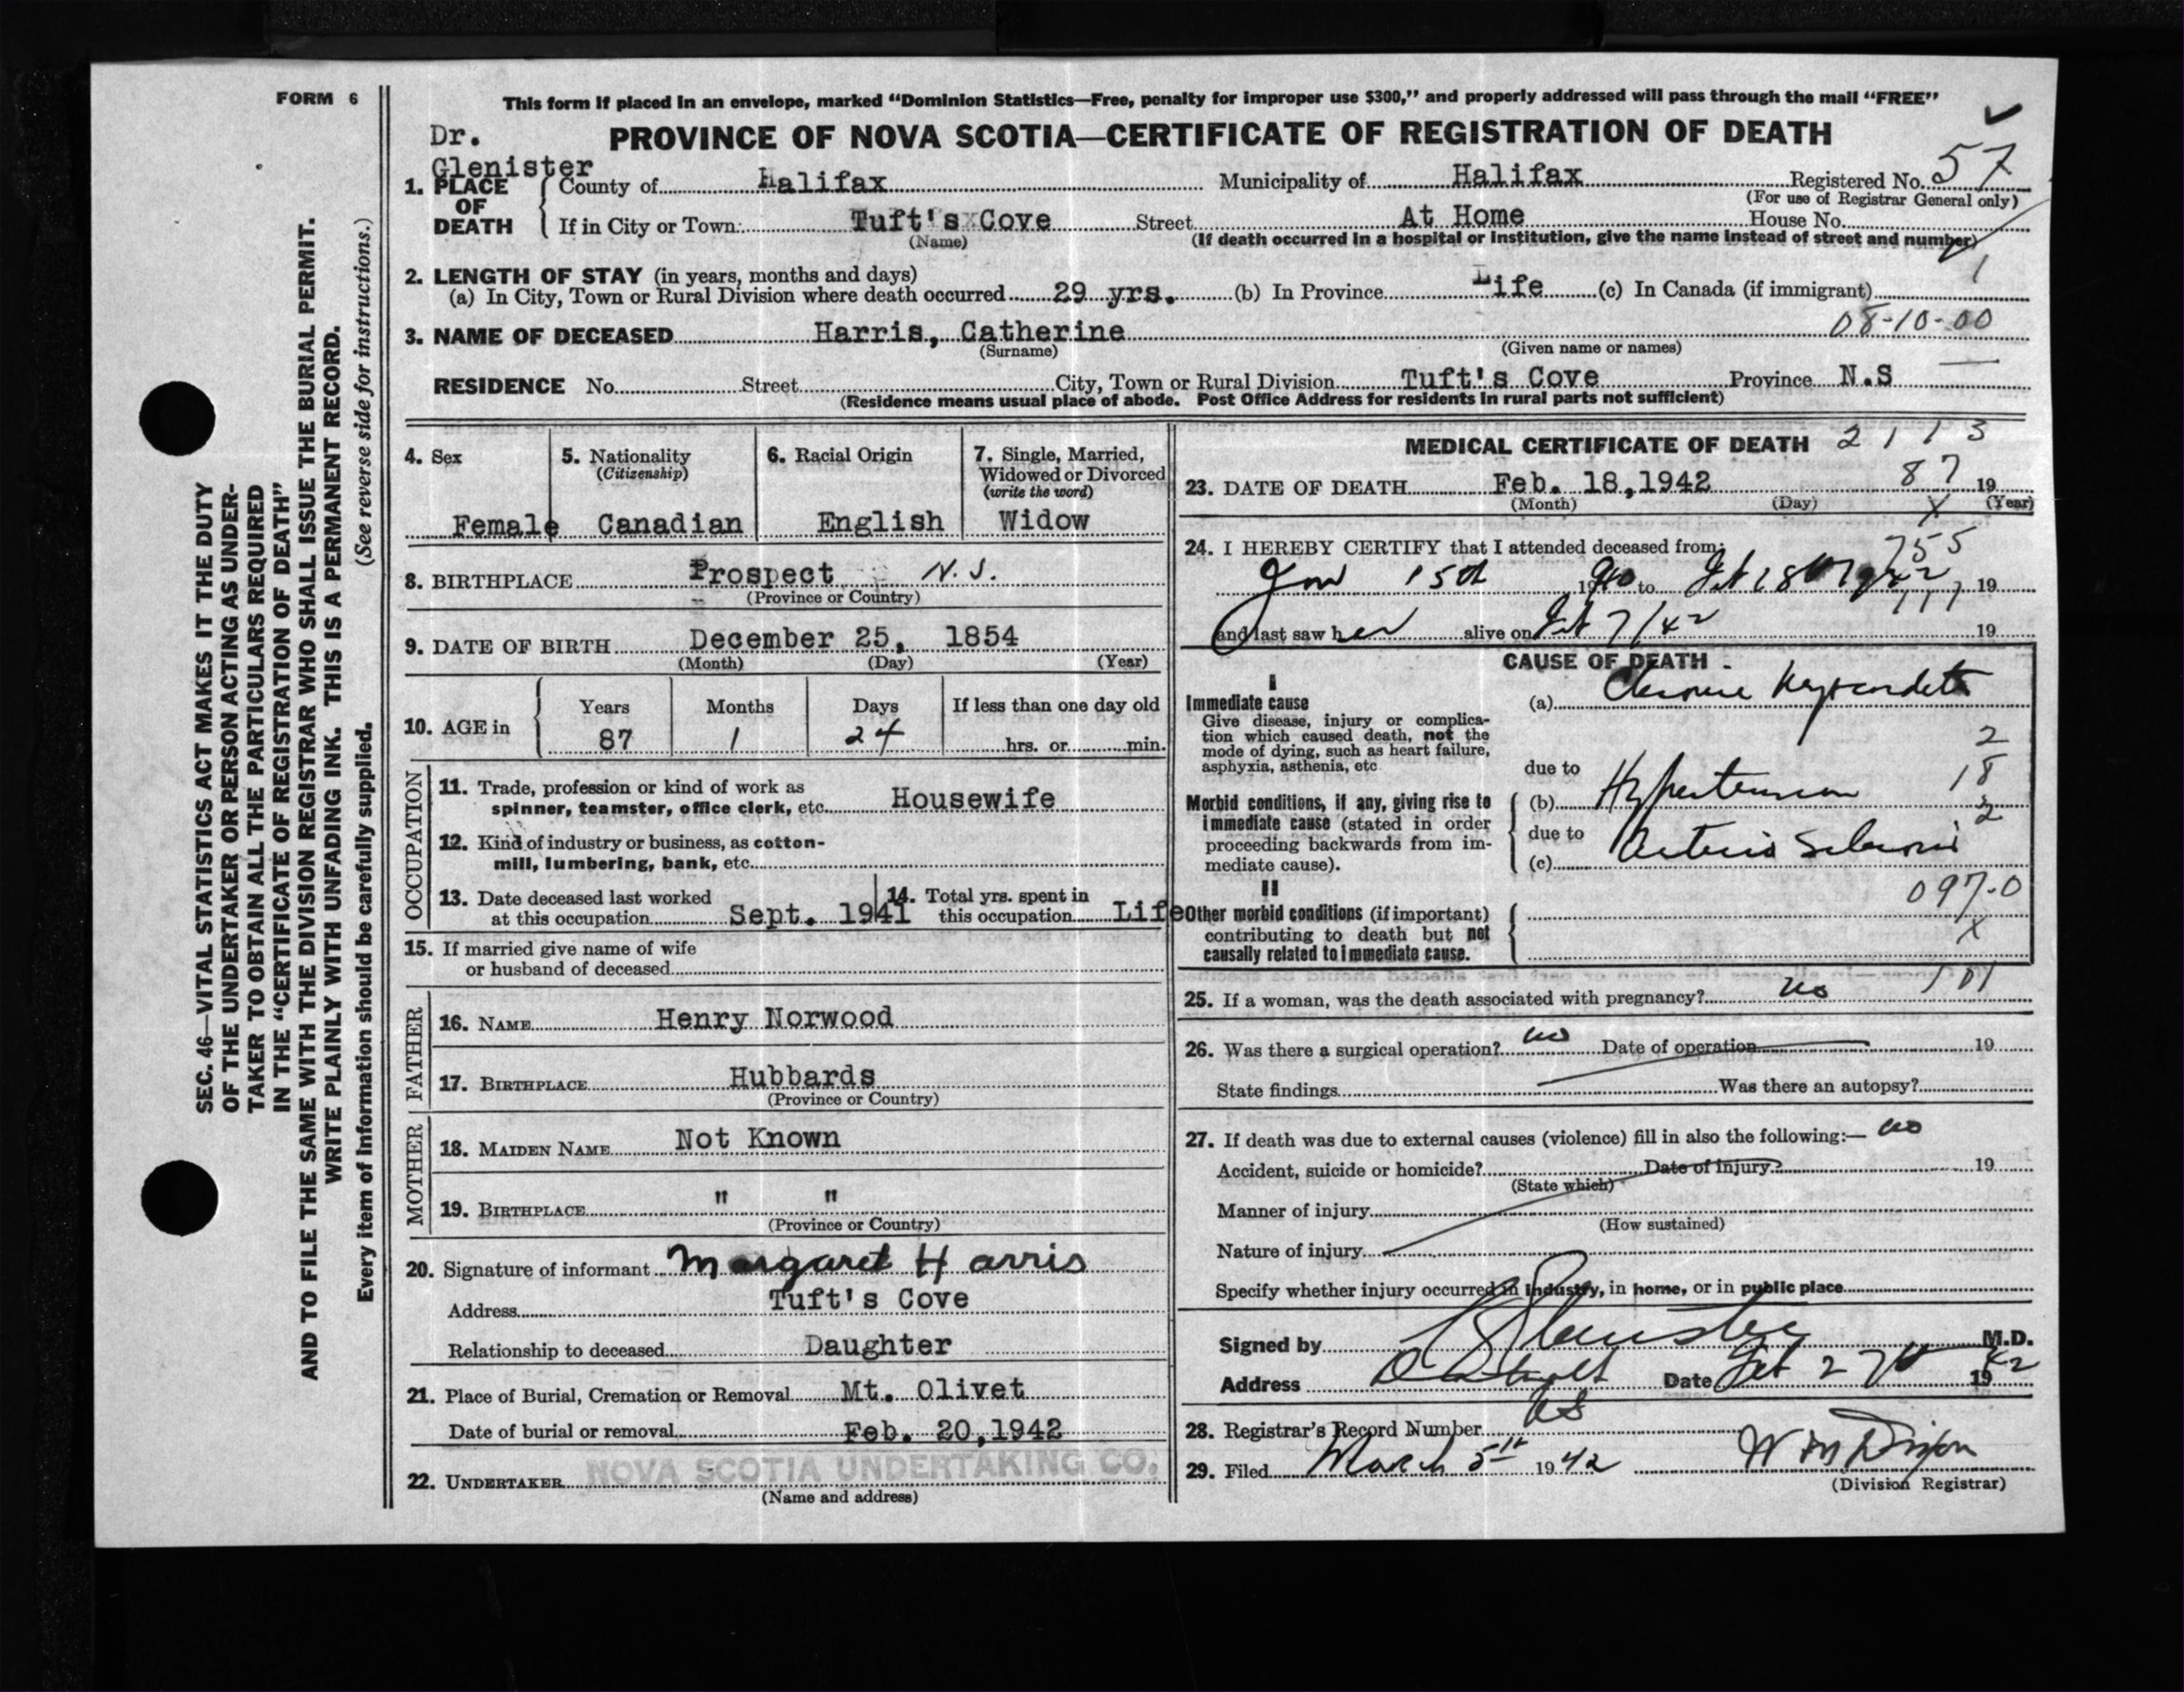 FORM 6
This form if placed in an envelope, marked “Dominion Statistics—Free, penalty for improper use $300,” and properly addressed will pass through the mail “FREE”
Dr. Glenister
PROVINCE OF NOVA SCOTIA—CERTIFICATE OF REGISTRATION OF DEATH
1. PLACE OF DEATH
County of Halifax Municipality of Halifax Registered No. 57
(For use of Registrar General only)
If in City or Town Tuft's Cove Street At Home House No.
(Name) (If death occurred in a hospital or institution, give the name instead of street and number)
1
2. LENGTH OF STAY (in years, months and days)
(a) In City, Town or Rural Division where death occurred 29 yrs. (b) In Province Life (c) In Canada (if immigrant)
08-10-00
3. NAME OF DECEASED Harris, Catherine
(Surname) (Given name or names)
RESIDENCE No. Street City, Town or Rural Division Tuft's Cove Province N.S
(Residence means usual place of abode. Post Office Address for residents in rural parts not sufficient)
4. Sex
Female
5. Nationality
(Citizenship)
Canadian
6. Racial Origin
English
7. Single, Married, Widowed or Divorced
(write the word)
Widow
8. BIRTHPLACE Prospect N.S.
(Province or Country)
9. DATE OF BIRTH December 25, 1854
(Month) (Day) (Year)
10. AGE in
Years Months Days If less than one day old
87 1 24 hrs. or min.
OCCUPATION
11. Trade, profession or kind of work as
spinner, teamster, office clerk, etc. Housewife
12. Kind of industry or business, as cotton-
mill, lumbering, bank, etc.
13. Date deceased last worked
at this occupation Sept. 1941
14. Total yrs. spent in
this occupation Life
15. If married give name of wife
or husband of deceased
FATHER
16. NAME Henry Norwood
17. BIRTHPLACE Hubbards
(Province or Country)
MOTHER
18. MAIDEN NAME Not Known
19. BIRTHPLACE " "
(Province or Country)
20. Signature of informant Margaret Harris
Address Tuft's Cove
Relationship to deceased Daughter
21. Place of Burial, Cremation or Removal Mt. Olivet
Date of burial or removal Feb. 20, 1942
22. UNDERTAKER NOVA SCOTIA UNDERTAKING CO.
(Name and address)
MEDICAL CERTIFICATE OF DEATH 2 1 1 3
23. DATE OF DEATH Feb. 18, 1942 87 19
(Month) (Day) (Year)
X
24. I HEREBY CERTIFY that I attended deceased from:
755
Jan 15th 1940 to Feb 18th 1942 19
and last saw her alive on Feb 7/42 19
CAUSE OF DEATH
I
Immediate cause
Give disease, injury or complica-
tion which caused death, not the
mode of dying, such as heart failure,
asphyxia, asthenia, etc.
(a) Chronic Myocarditis
due to
Morbid conditions, if any, giving rise to
immediate cause (stated in order
proceeding backwards from im-
mediate cause).
(b) Hypertension
due to
(c) Arterio Sclerosis
2
18
2
097.0
X
II
Other morbid conditions (if important)
contributing to death but not
causally related to immediate cause.
101
25. If a woman, was the death associated with pregnancy? no
26. Was there a surgical operation? no Date of operation 19
State findings Was there an autopsy?
27. If death was due to external causes (violence) fill in also the following:— no
Accident, suicide or homicide? Date of injury? 19
(State which)
Manner of injury
(How sustained)
Nature of injury
Specify whether injury occurred in industry, in home, or in public place
Signed by Glenister M.D.
Address Date Feb 27th 1942
28. Registrar's Record Number
29. Filed March 5th 1942 W M Dixon
(Division Registrar)
SEC. 46—VITAL STATISTICS ACT MAKES IT THE DUTY
OF THE UNDERTAKER OR PERSON ACTING AS UNDER-
TAKER TO OBTAIN ALL THE PARTICULARS REQUIRED
IN THE “CERTIFICATE OF REGISTRATION OF DEATH”
AND TO FILE THE SAME WITH THE DIVISION REGISTRAR WHO SHALL ISSUE THE BURIAL PERMIT.
WRITE PLAINLY WITH UNFADING INK. THIS IS A PERMANENT RECORD.
Every item of information should be carefully supplied. (See reverse side for instructions.)